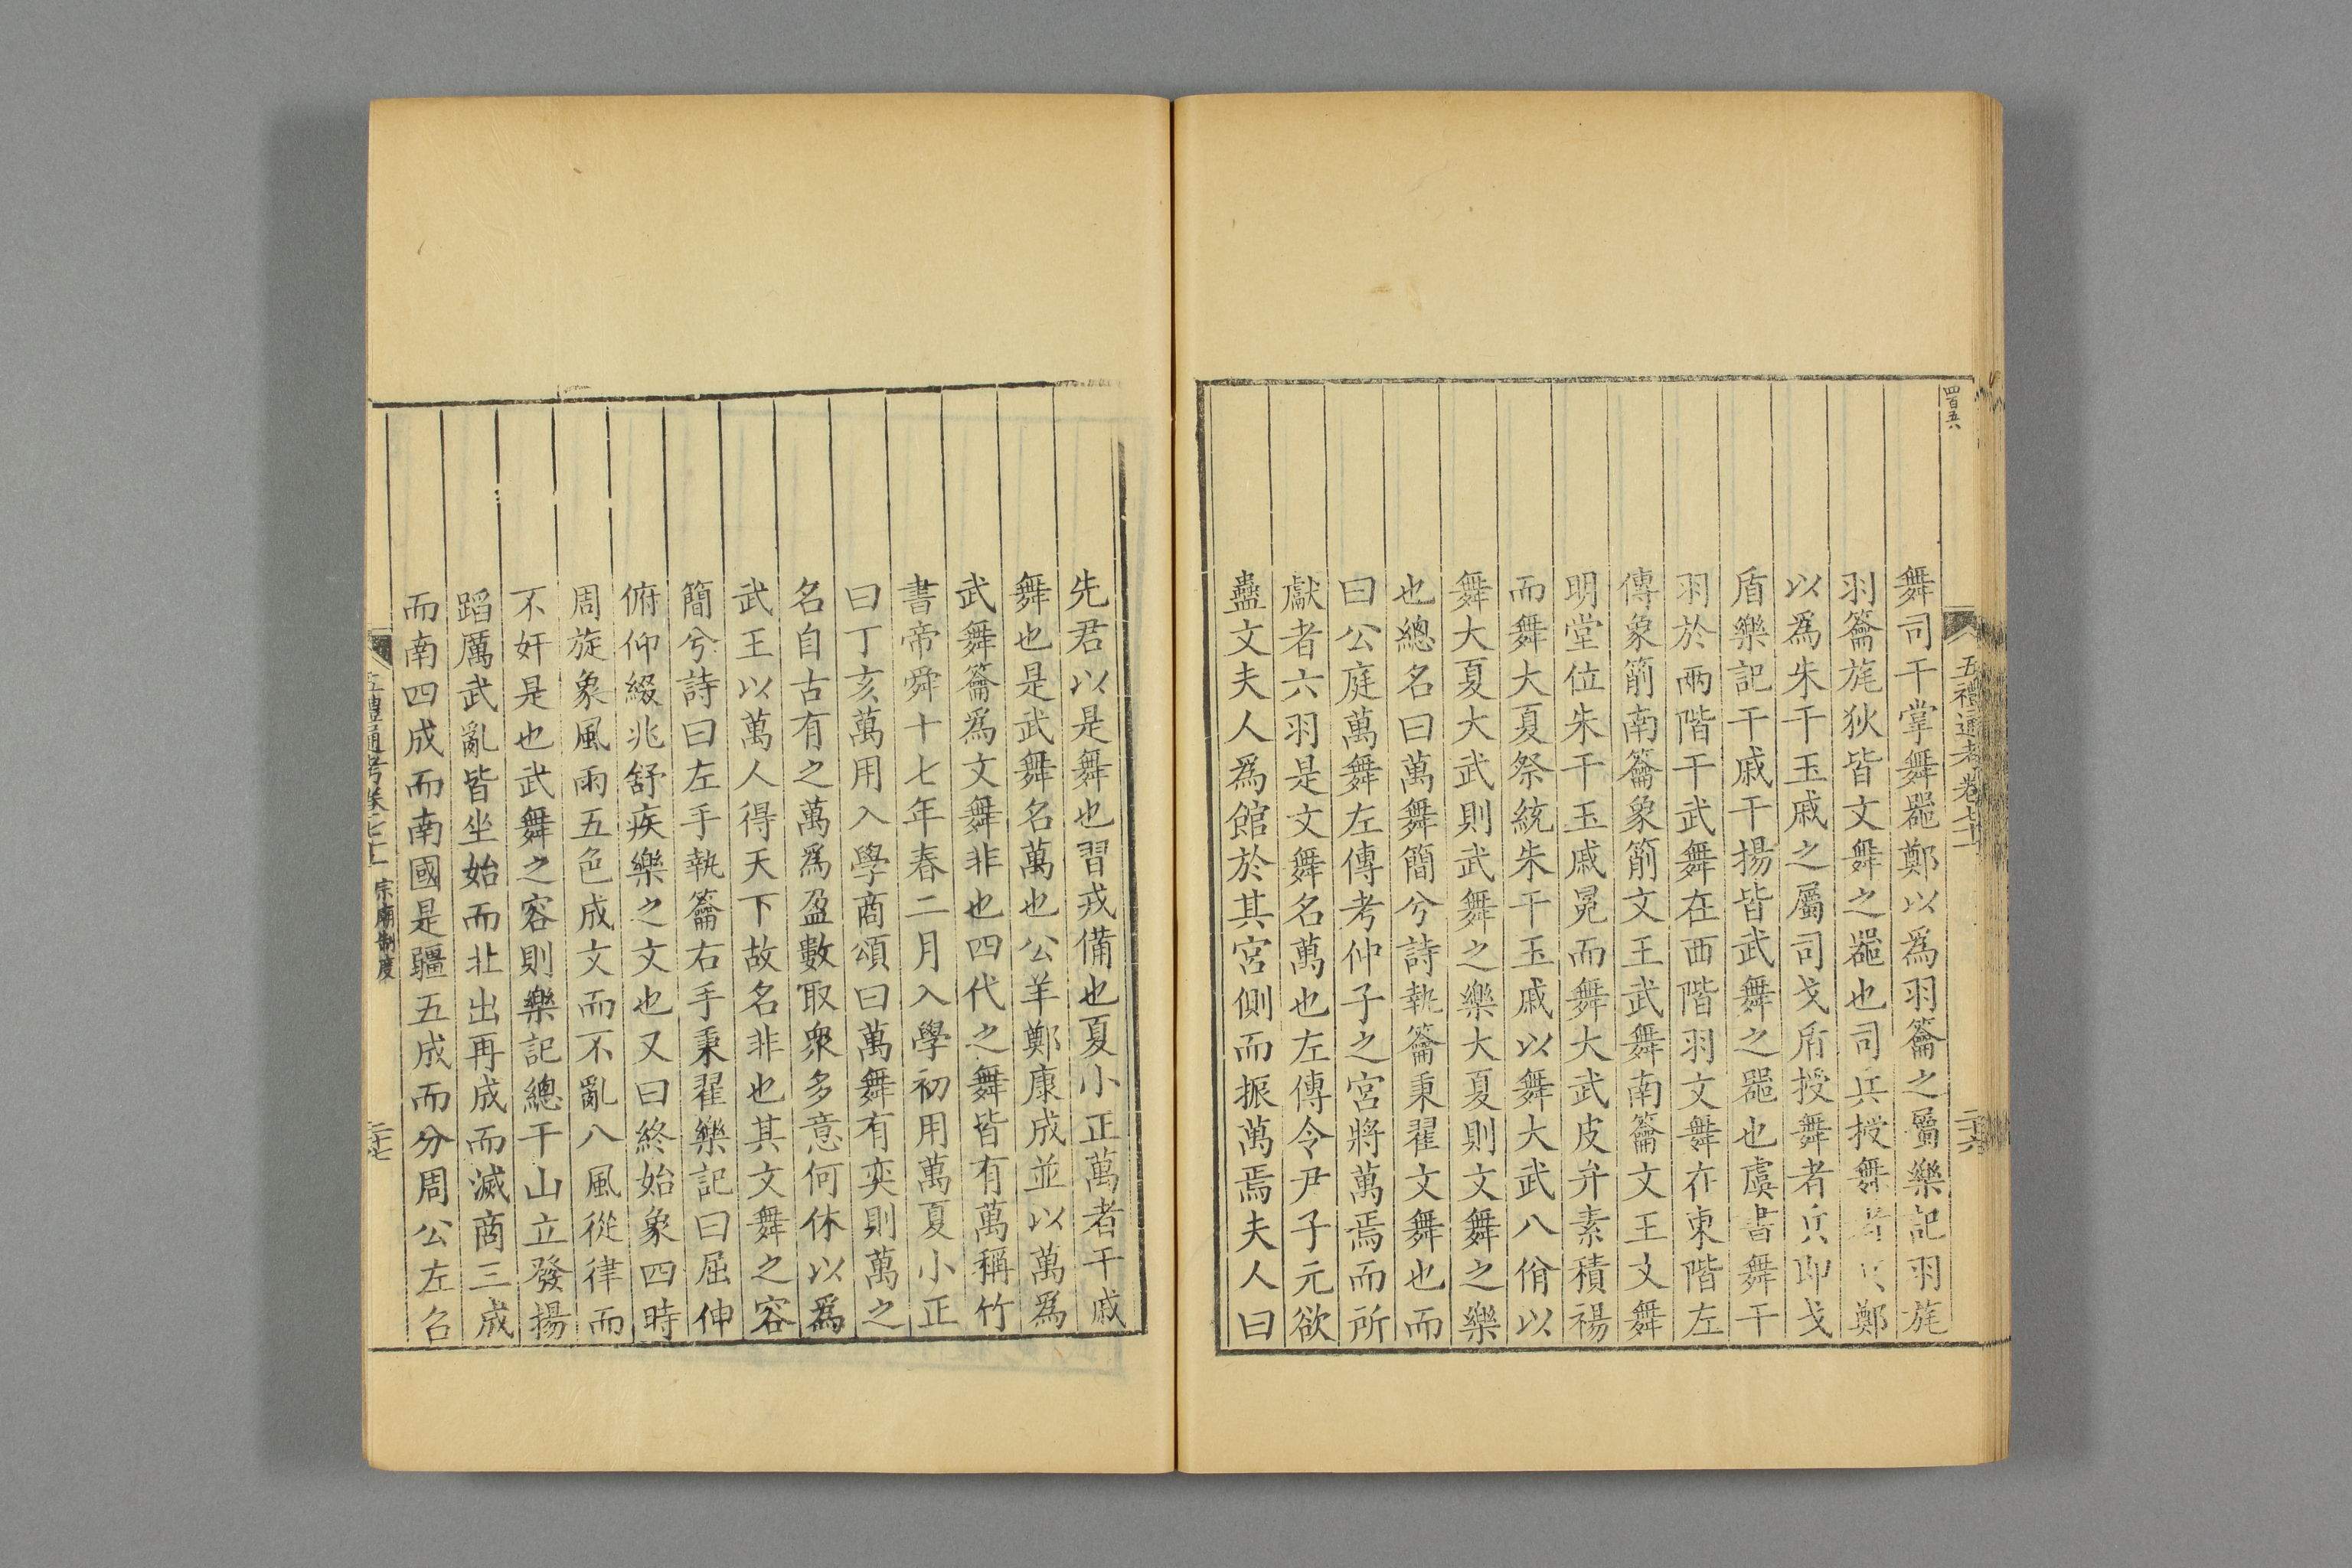 四百五六
五禮通考卷七十
二十六
舞司干掌舞器鄭以爲羽籥之屬樂記羽旄
羽籥旄狄皆文舞之器也司兵授舞者兵鄭
以爲朱干玉戚之屬司戈盾授舞者兵卽戈
盾樂記干戚干揚皆武舞之器也虞書舞干
羽於兩階干武舞在西階羽文舞在東階左
傳象箾南籥象箾文王武舞南籥文王文舞
明堂位朱干玉戚冕而舞大武皮弁素積裼
而舞大夏祭統朱干玉戚以舞大武八佾以
舞大夏大武則武舞之樂大夏則文舞之樂
也總名曰萬舞簡兮詩執籥秉翟文舞也而
曰公庭萬舞左傳考仲子之宮將萬焉而所
獻者六羽是文舞名萬也左傳令尹子元欲
蠱文夫人爲館於其宮側而振萬焉夫人曰
先君以是舞也習戎備也夏小正萬者干戚
舞也是武舞名萬也公羊鄭康成並以萬爲
武舞籥爲文舞非也四代之舞皆有萬稱竹
書帝舜十七年春二月入學初用萬夏小正
曰丁亥萬用入學商頌曰萬舞有奕則萬之
名自古有之萬爲盈數取衆多意何休以爲
武王以萬人得天下故名非也其文舞之容
簡兮詩曰左手執籥右手秉翟樂記曰屈伸
俯仰綴兆舒疾樂之文也又曰終始象四時
周旋象風雨五色成文而不亂八風從律而
不奸是也武舞之容則樂記總干山立發揚
蹈厲武亂皆坐始而北出再成而滅商三成
而南四成而南國是疆五成而分周公左召
五禮通考卷七十 宗廟制度
二十七